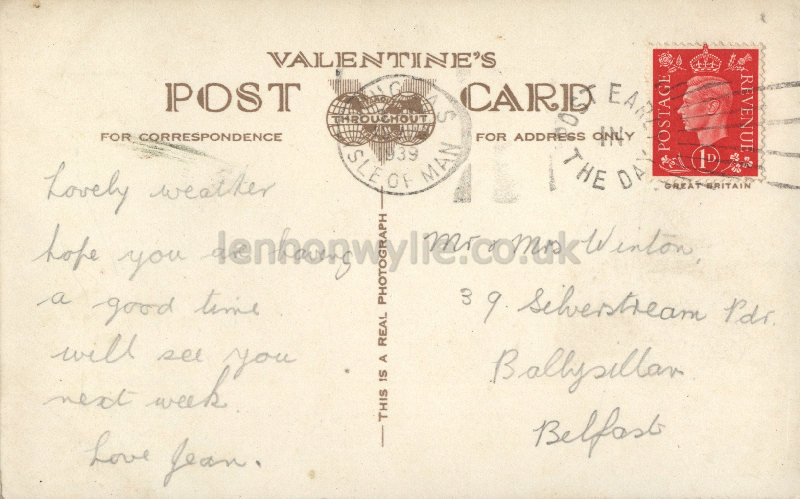 VALENTINE'S
POST CARD
THROUGHOUT
FOR CORRESPONDENCE
FOR ADDRESS ONLY
DOUGLAS
1939
ISLE OF MAN
POST EARLY
IN
THE DAY
POSTAGE REVENUE
1D
GREAT BRITAIN
Lovely weather
hope you are having
a good time
will see you
next week
Love Jean.
THIS IS A REAL PHOTOGRAPH
lenhonwylie.co.uk
Mr & Mrs Winton,
39. Silverstream Pdr.
Ballysillan
Belfast